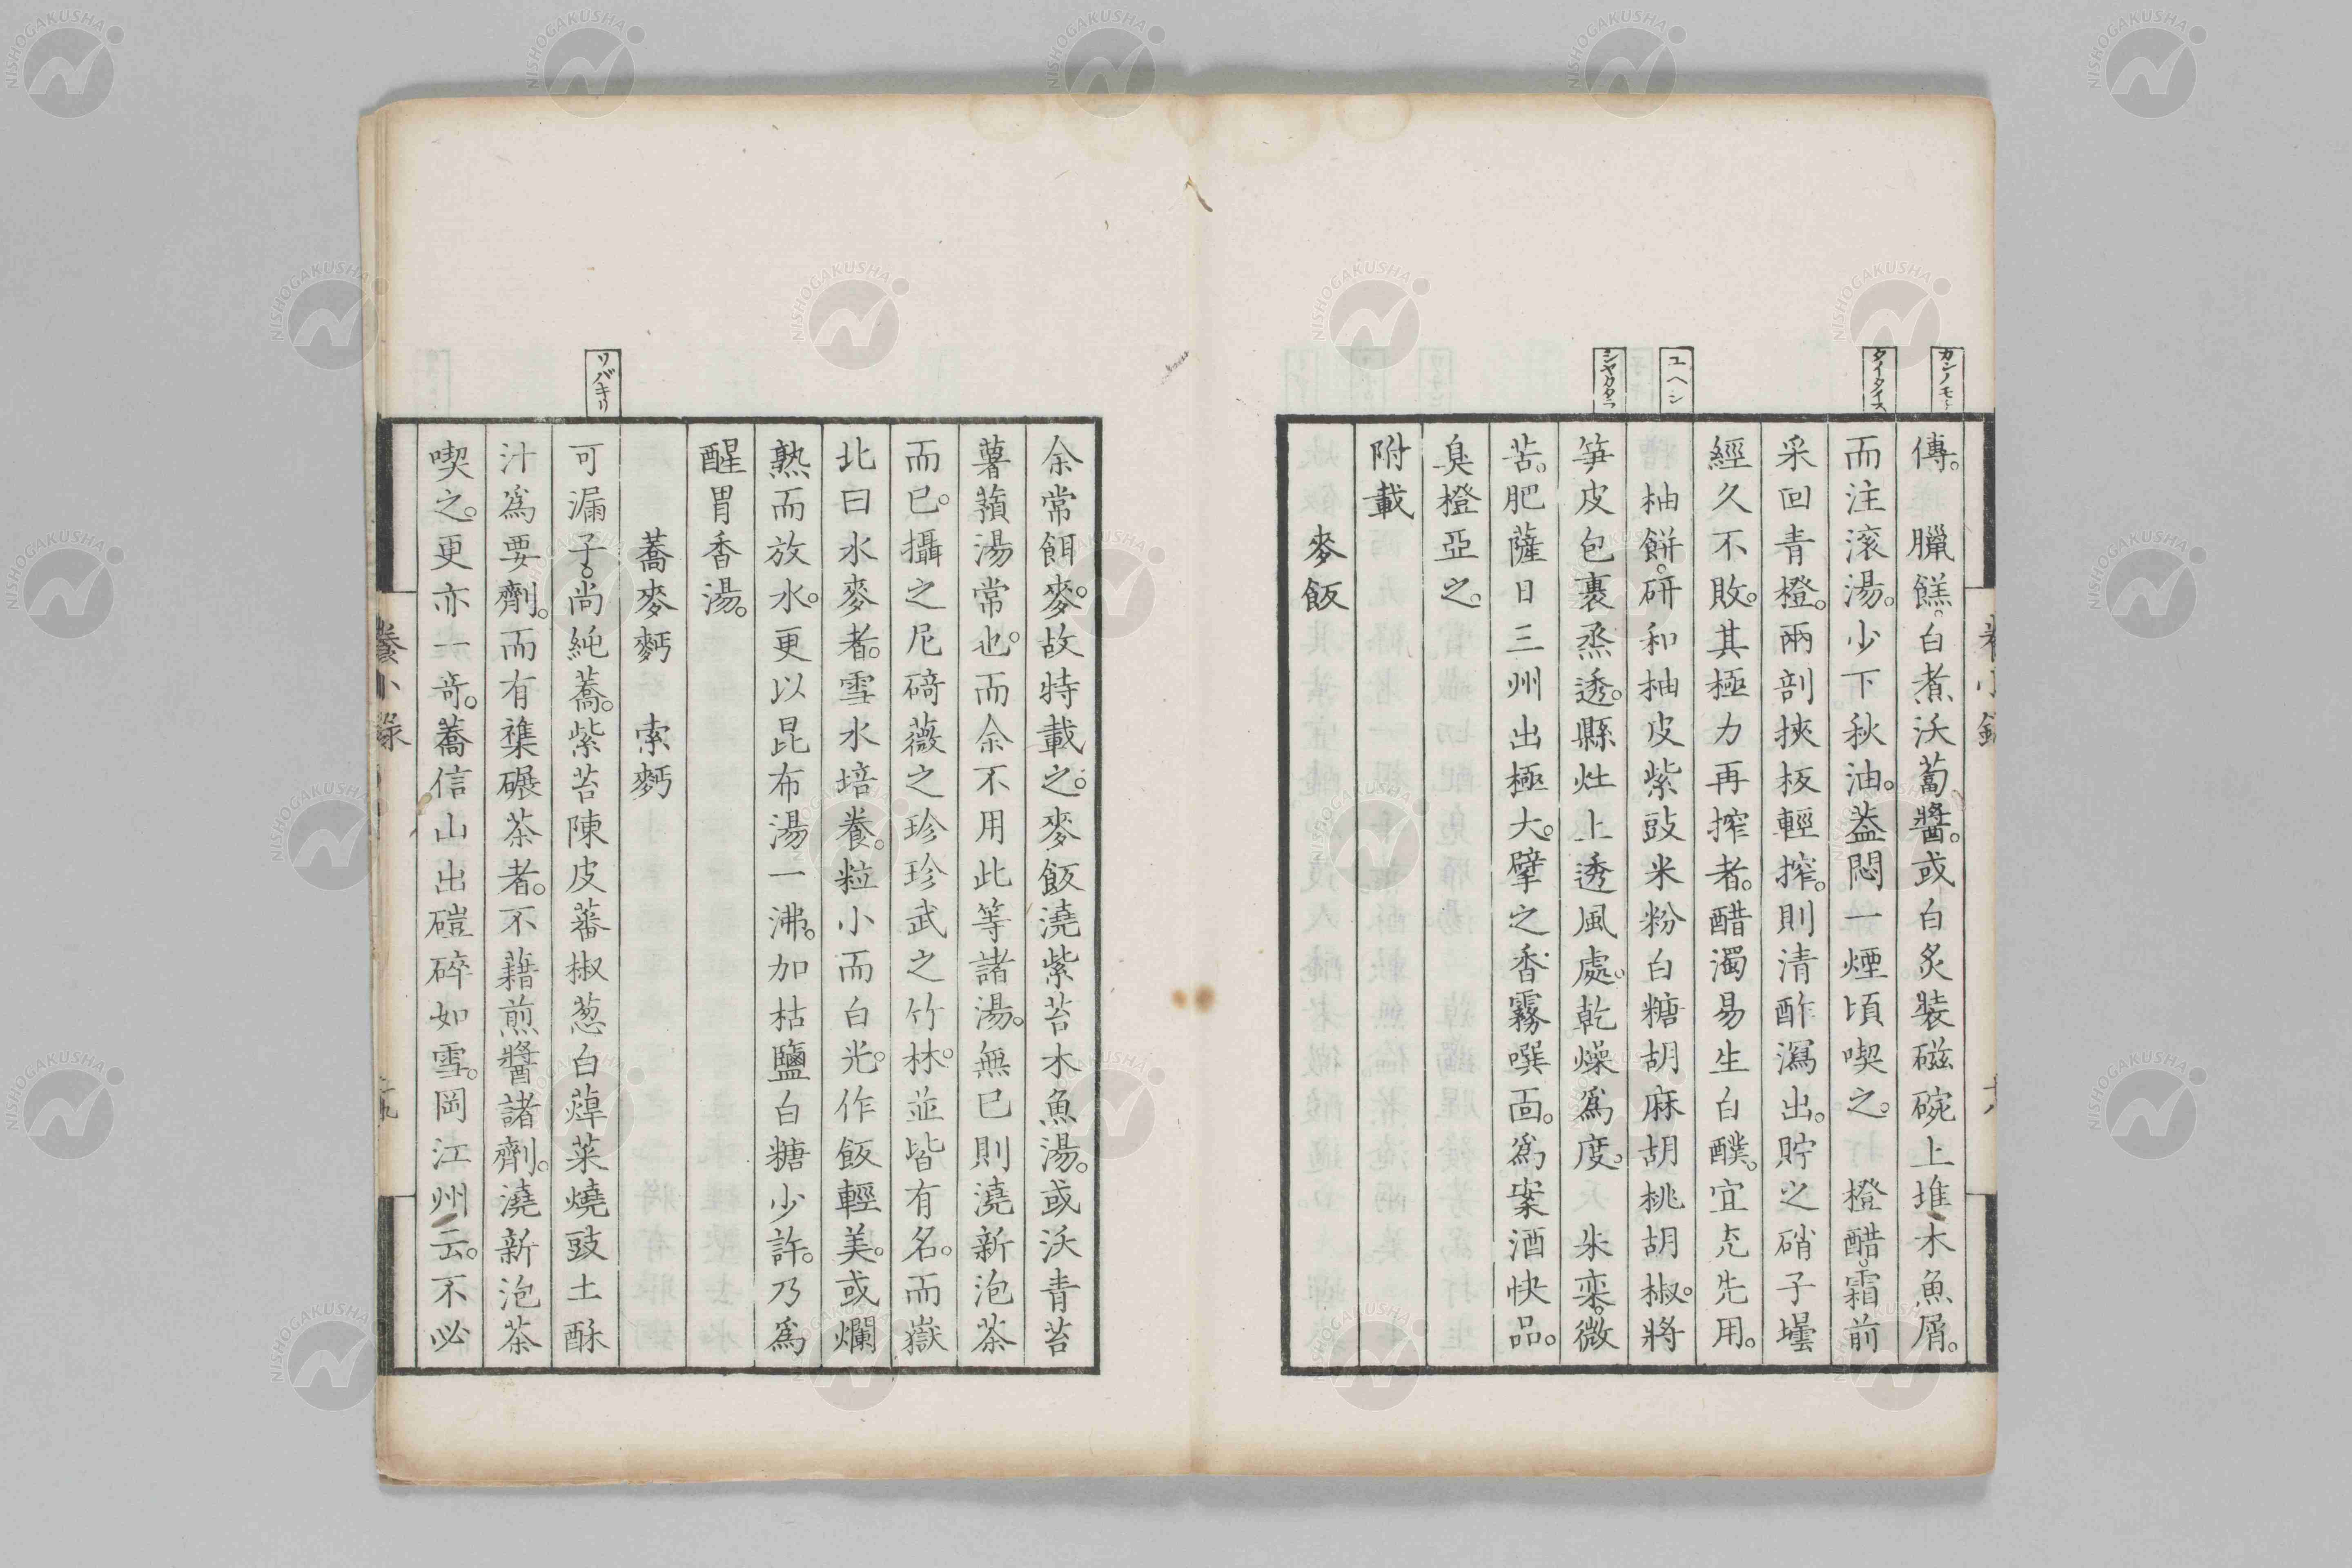 カンノモチ
タイタイス
ユヘシ
シヤカタラ
傳。　臘餻。白煮沃蔔醬。或白炙裝磁碗上堆木魚屑。
而注滚湯。少下秋油。葢悶一煙頃喫之。　橙醋。霜前
采回青橙。兩剖挾板輕搾。則清酢瀉出。貯之硝子壜
經久不敗。其極力再搾者。醋濁易生白醭。宜先先用。
柚餅。研和柚皮紫豉米粉白糖胡麻胡桃胡椒。將
笋皮包裹烝透。縣灶上透風處。乾燥爲度。　朱欒。微
苦。肥薩日三州出極大。擘之香霧噀面。爲案酒快品。
臭橙亞之。
附載
麥飯
ソバキリ
余常餌。麥。故特載之。麥飯澆紫苔木魚湯。或沃青苔
薯蕷湯常也。而余不用此等諸湯。無已則澆新泡茶
而已。攝之尼碕薇之珍珍武之竹林。並皆有名。而嶽
北曰水麥者。雪水培養。粒小而白光。作飯輕美。或爛
熟而放水。更以昆布湯一沸。加枯鹽白糖少許。乃爲
醒胃香湯。
蕎麥麪　索麪
可漏子。尚純蕎。紫苔陳皮蕃椒葱白蔊菜燒豉土酥
汁爲要劑。而有襍碾茶者。不藉煎醬諸劑。澆新泡茶
喫之。更亦一奇。蕎信山出磑碎如雪。岡江州云。不必
養小錄